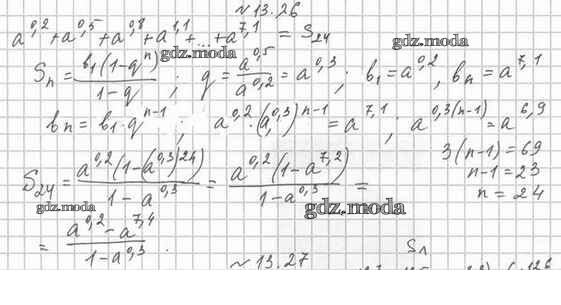 № 13.26
a^0,2 + a^0,5 + a^0,8 + a^1,1 + ... + a^7,1 = S_24
gdz.moda gdz.moda
S_n = b_1(1-q^n) / 1-q ; q = a^0,5 / a^0,2 = a^0,3 ; b_1 = a^0,2, b_n = a^7,1
b_n = b_1·q^n-1 ; a^0,2·(a^0,3)^n-1 = a^7,1 ; a^0,3(n-1) = a^6,9
3(n-1) = 69
n-1 = 23
n = 24
S_24 = a^0,2(1-(a^0,3)^24) / 1-a^0,3 = a^0,2(1-a^7,2) / 1-a^0,3 =
gdz.moda gdz.moda
= a^0,2 - a^7,4 / 1-a^0,3 .
№ 13.27